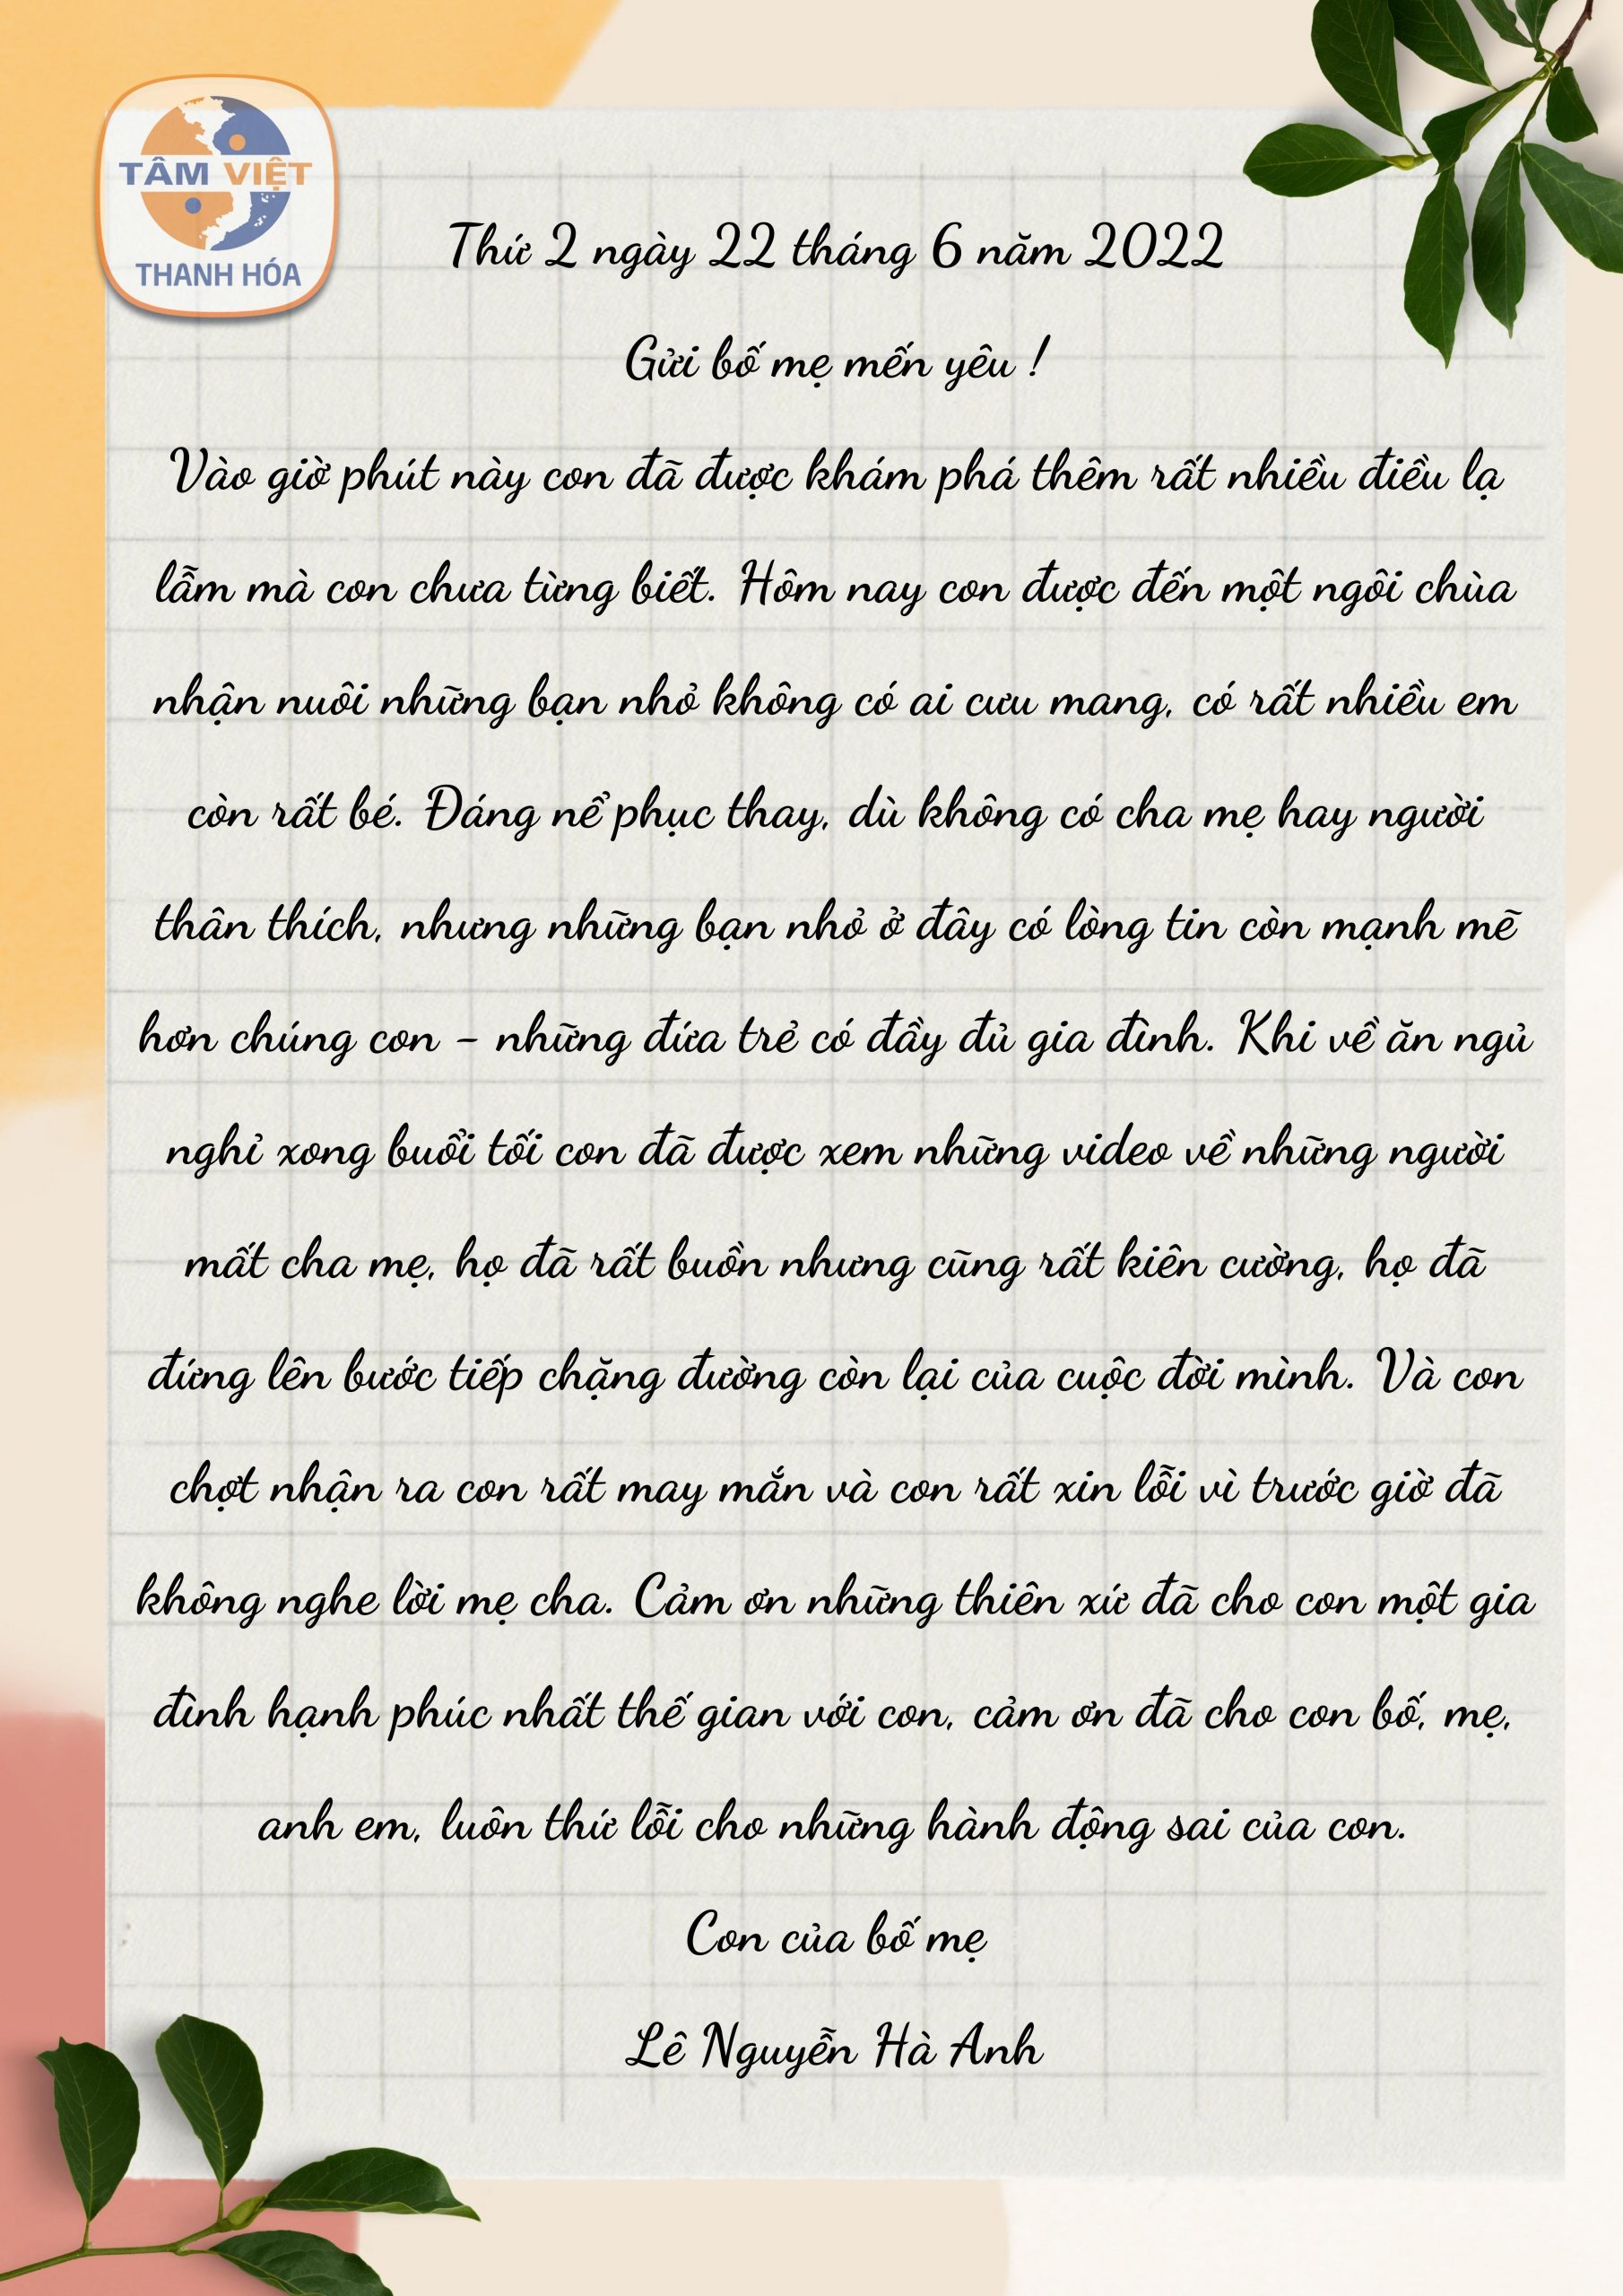 TÂM VIỆT
THANH HÓA
Thứ 2 ngày 22 tháng 6 năm 2022
Gửi bố mẹ mến yêu !
Vào giờ phút này con đã được khám phá thêm rất nhiều điều lạ
lẫm mà con chưa từng biết. Hôm nay con được đến một ngôi chùa
nhận nuôi những bạn nhỏ không có ai cưu mang, có rất nhiều em
còn rất bé. Đáng nể phục thay, dù không có cha mẹ hay người
thân thích, nhưng những bạn nhỏ ở đây có lòng tin còn mạnh mẽ
hơn chúng con - những đứa trẻ có đầy đủ gia đình. Khi về ăn ngủ
nghỉ xong buổi tối con đã được xem những video về những người
mất cha mẹ, họ đã rất buồn nhưng cũng rất kiên cường, họ đã
đứng lên bước tiếp chặng đường còn lại của cuộc đời mình. Và con
chợt nhận ra con rất may mắn và con rất xin lỗi vì trước giờ đã
không nghe lời mẹ cha. Cảm ơn những thiên xứ đã cho con một gia
đình hạnh phúc nhất thế gian với con, cảm ơn đã cho con bố, mẹ,
anh em, luôn thứ lỗi cho những hành động sai của con.
Con của bố mẹ
Lê Nguyễn Hà Anh